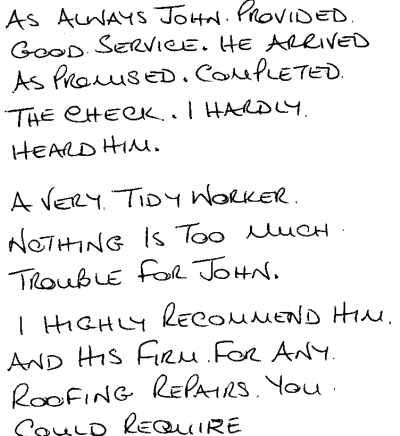 AS ALWAYS JOHN. PROVIDED.
GOOD. SERVICE. HE ARRIVED
AS PROMISED. COMPLETED.
THE CHECK.. I HARDLY.
HEARD HIM.
A VERY. TIDY WORKER.
NOTHING IS TOO MUCH.
TROUBLE FOR JOHN.
I HIGHLY RECOMMEND HIM.
AND HIS FIRM. FOR ANY.
ROOFING REPAIRS. YOU.
COULD REQUIRE